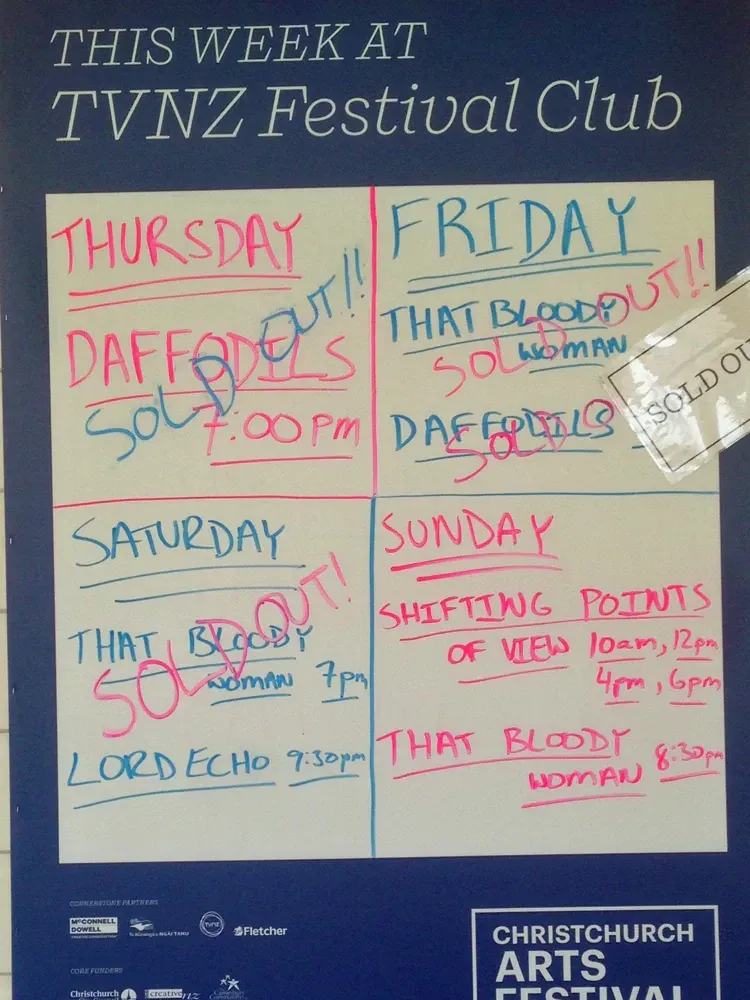 THIS WEEK AT
TVNZ Festival Club
THURSDAY
DAFFODILS
SOLD OUT!!
7:00pm
FRIDAY
THAT BLOODY
WOMAN
SOLD OUT!!
DAFFODILS
SOLD
SOLD OU
SATURDAY
THAT BLOODY
WOMAN 7pm
SOLD OUT!
LORD ECHO 9:30pm
SUNDAY
SHIFTING POINTS
OF VIEW 10am, 12pm
4pm, 6pm
THAT BLOODY
WOMAN 8:30pm
CORNERSTONE PARTNERS
MCCONNELL
DOWELL
Te Rūnanga o NGĀI TAHU
TVNZ
Fletcher
CORE FUNDERS
Christchurch
creativenz
CHRISTCHURCH
ARTS
FESTIVAL